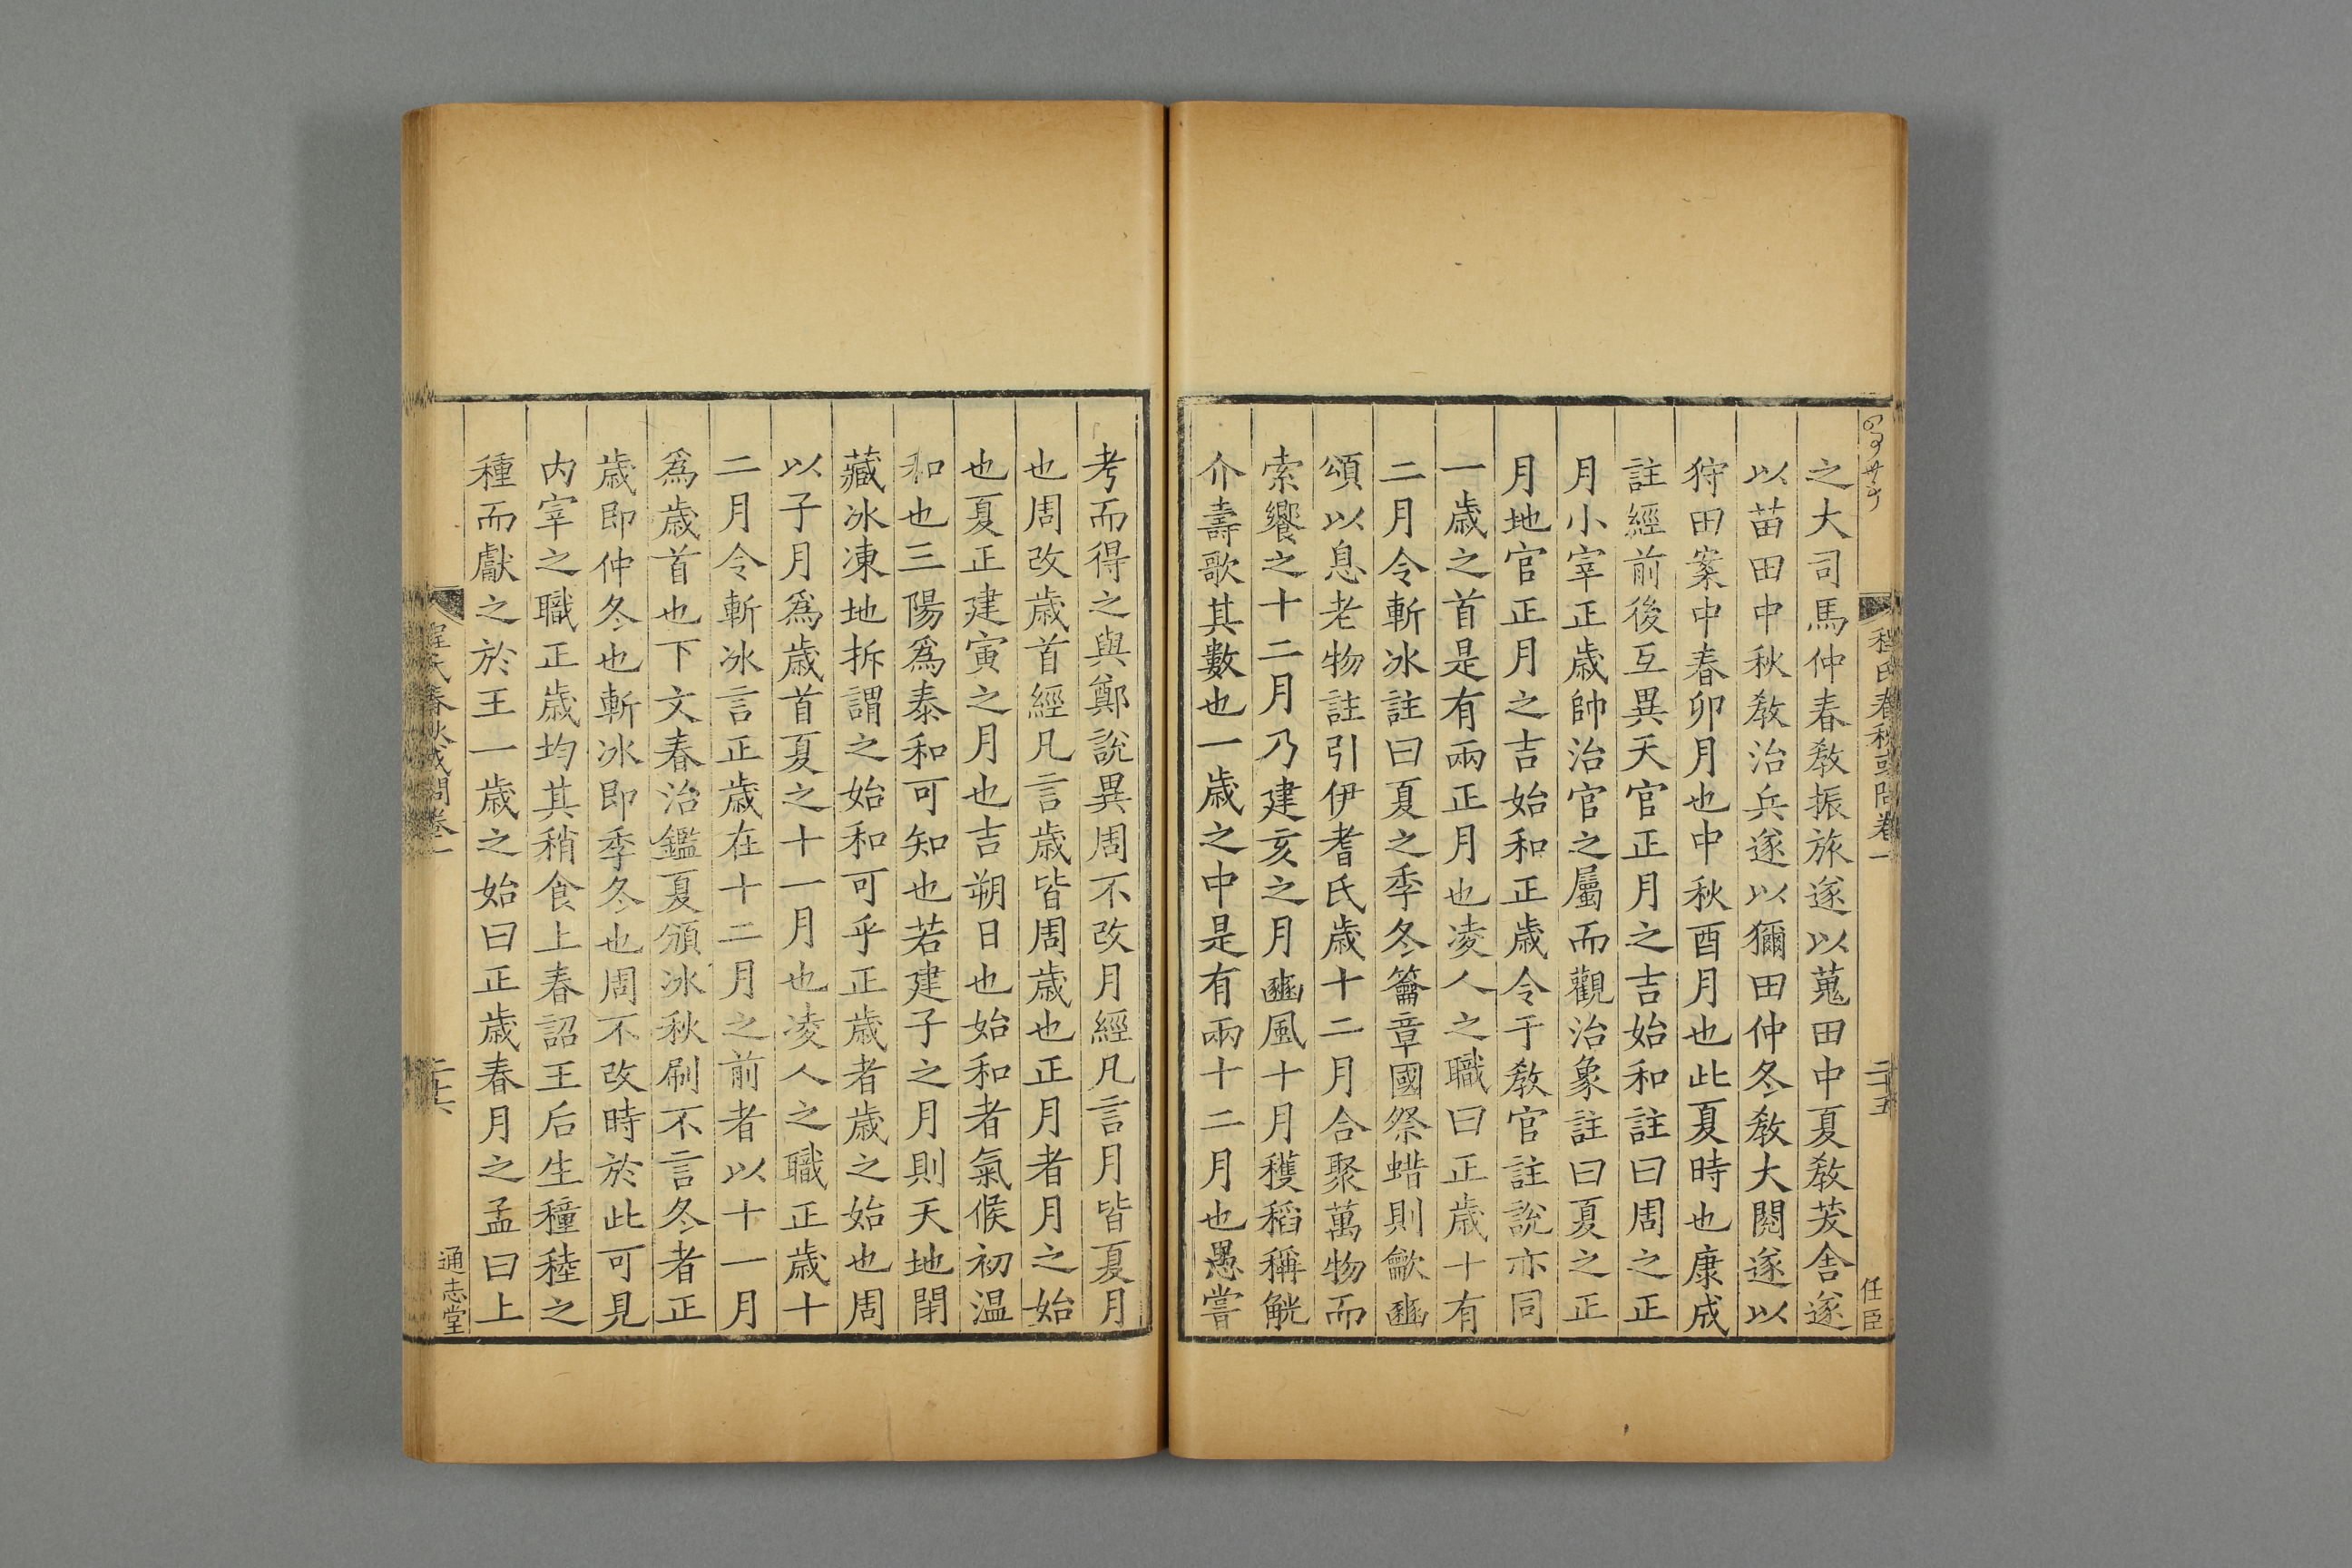 程氏春秋或問卷一
二十五
任臣
之大司馬仲春敎振旅遂以蒐田中夏敎茇舍遂
以苗田中秋敎治兵遂以獮田仲冬敎大閱遂以
狩田案中春卯月也中秋酉月也此夏時也康成
註經前後互異天官正月之吉始和註曰周之正
月小宰正歲帥治官之屬而觀治象註曰夏之正
月地官正月之吉始和正歲令于敎官註說亦同
一歲之首是有兩正月也凌人之職曰正歲十有
二月令斬冰註曰夏之季冬籥章國祭蜡則龡豳
頌以息老物註引伊耆氏歲十二月合聚萬物而
索饗之十二月乃建亥之月豳風十月穫稻稱觥
介壽歌其數也一歲之中是有兩十二月也愚嘗
考而得之與鄭說異周不改月經凡言月皆夏月
也周改歲首經凡言歲皆周歲也正月者月之始
也夏正建寅之月也吉朔日也始和者氣候初温
和也三陽爲泰和可知也若建子之月則天地閉
藏冰凍地拆謂之始和可乎正歲者歲之始也周
以子月爲歲首夏之十一月也凌人之職正歲十
二月令斬冰言正歲在十二月之前者以十一月
爲歲首也下文春治鑑夏頒冰秋刷不言冬者正
歲即仲冬也斬冰即季冬也周不改時於此可見
内宰之職正歲均其稍食上春詔王后生穜稑之
種而獻之於王一歲之始曰正歲春月之孟曰上
程氏春秋或問卷一
二十六
通志堂